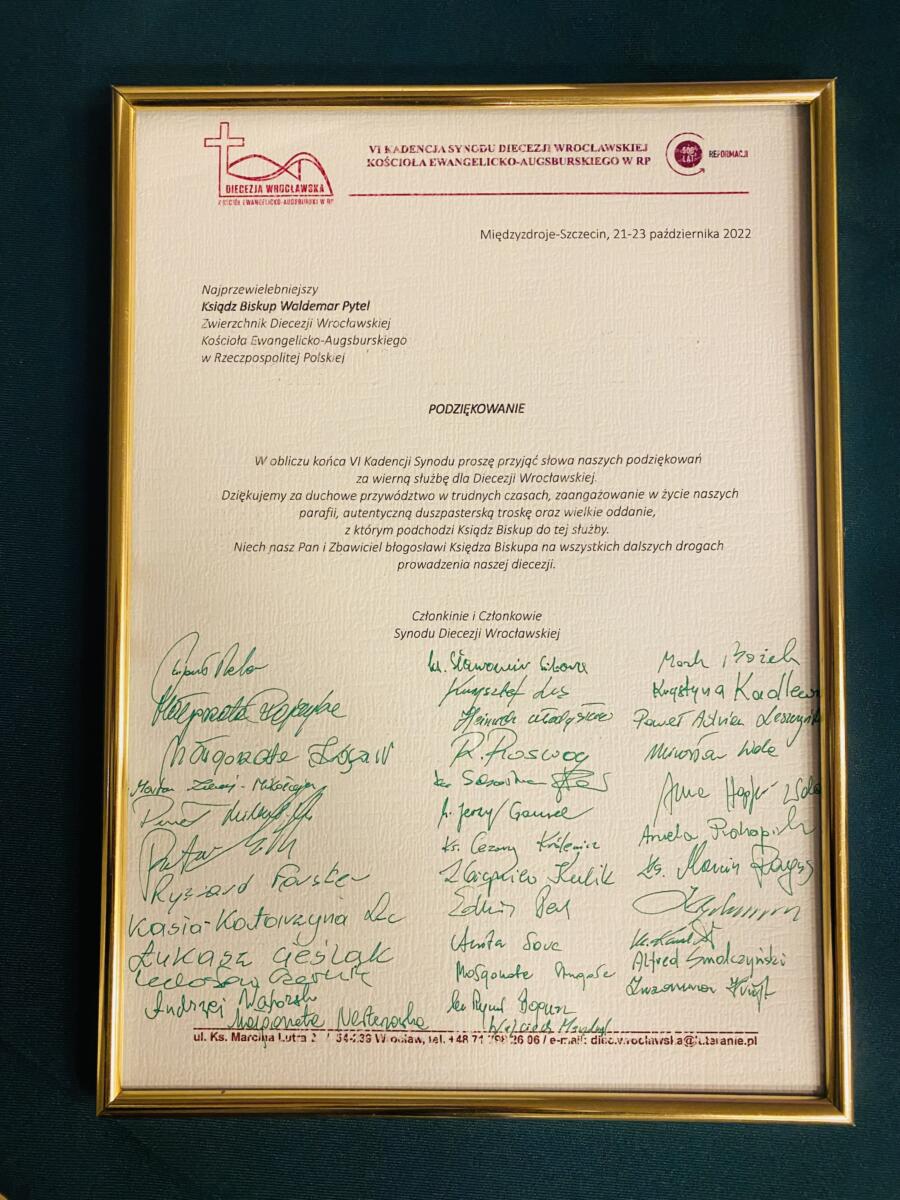 DIECEZJA WROCŁAWSKA
KOŚCIÓŁ EWANGELICKO-AUGSBURSKI W RP
VI KADENCJA SYNODU DIECEZJI WROCŁAWSKIEJ
KOŚCIOŁA EWANGELICKO-AUGSBURSKIEGO W RP
500 LAT REFORMACJI
Międzyzdroje-Szczecin, 21-23 października 2022
Najprzewielebniejszy
Ksiądz Biskup Waldemar Pytel
Zwierzchnik Diecezji Wrocławskiej
Kościoła Ewangelicko-Augsburskiego
w Rzeczpospolitej Polskiej
PODZIĘKOWANIE
W obliczu końca VI Kadencji Synodu proszę przyjąć słowa naszych podziękowań
za wierną służbę dla Diecezji Wrocławskiej.
Dziękujemy za duchowe przywództwo w trudnych czasach, zaangażowanie w życie naszych
parafii, autentyczną duszpasterską troskę oraz wielkie oddanie,
z którym podchodzi Ksiądz Biskup do tej służby.
Niech nasz Pan i Zbawiciel błogosławi Księdza Biskupa na wszystkich dalszych drogach
prowadzenia naszej diecezji.
Członkinie i Członkowie
Synodu Diecezji Wrocławskiej
Małgorzata
Małgorzata
Ryszard
Kasia-Katarzyna
Łukasz Cieślak
Andrzej
Małgorzata
ks. Sławomir
Krzysztof
Henryk
R.
Jerzy
ks. Cezary Królewicz
Zbigniew Kulik
Edwin
Anita
Małgorzata
Wojciech
Marek Bożek
Krystyna Kadlew
Paweł Adrian Leszczyń
Mirosław
Anna
Aniela Prokop
ks. Marcin
Alfred Smolczyński
Zuzanna
ul. Ks. Marcina Lutra 2 54-239 Wrocław, tel. +48 71 798 26 06 / e-mail: diec.wroclawska@luteranie.pl